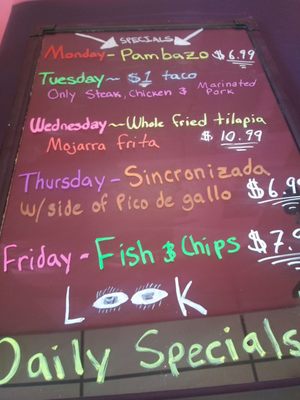 SPECIALS
Monday - Pambazo $6.99
Tuesday ~ $1 taco
Only Steak, Chicken & Marinated Pork
Wednesday ~ Whole fried tilapia
Mojarra frita $10.99
Thursday - Sincronizada
w/ side of Pico de gallo $6.99
Friday - Fish & Chips $7.9
LOOK
Daily Specials